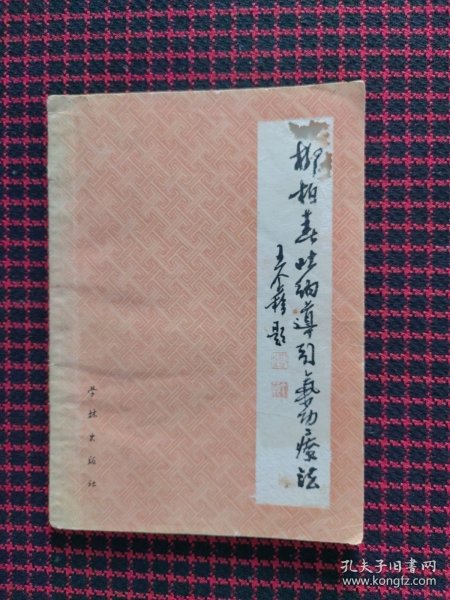 柳相春吐纳導引氣功療法
王个簃题
学林出版社
孔夫子旧书网
www.kongfz.com